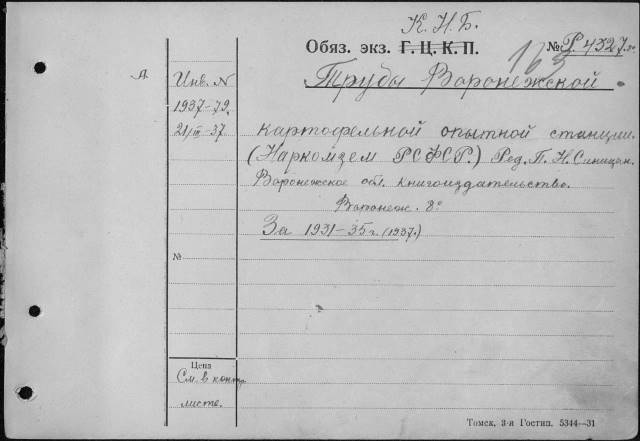 К. Н. Б.
Обяз. экз. Г. Ц. К. П. № Р. 4327
163
Д
Инв. N
1937-79.
21/III-37.
Труды Воронежской
картофельной опытной станции.
(Наркомзем РСФСР.) Ред. П. Н. Синицын.
Воронежское обл. книгоиздательство.
Воронеж. 8°
За 1931-35 г. (1937.)
№
Цена
См. в контр.
листе.
Томск, 3-я Гостип. 5344—31